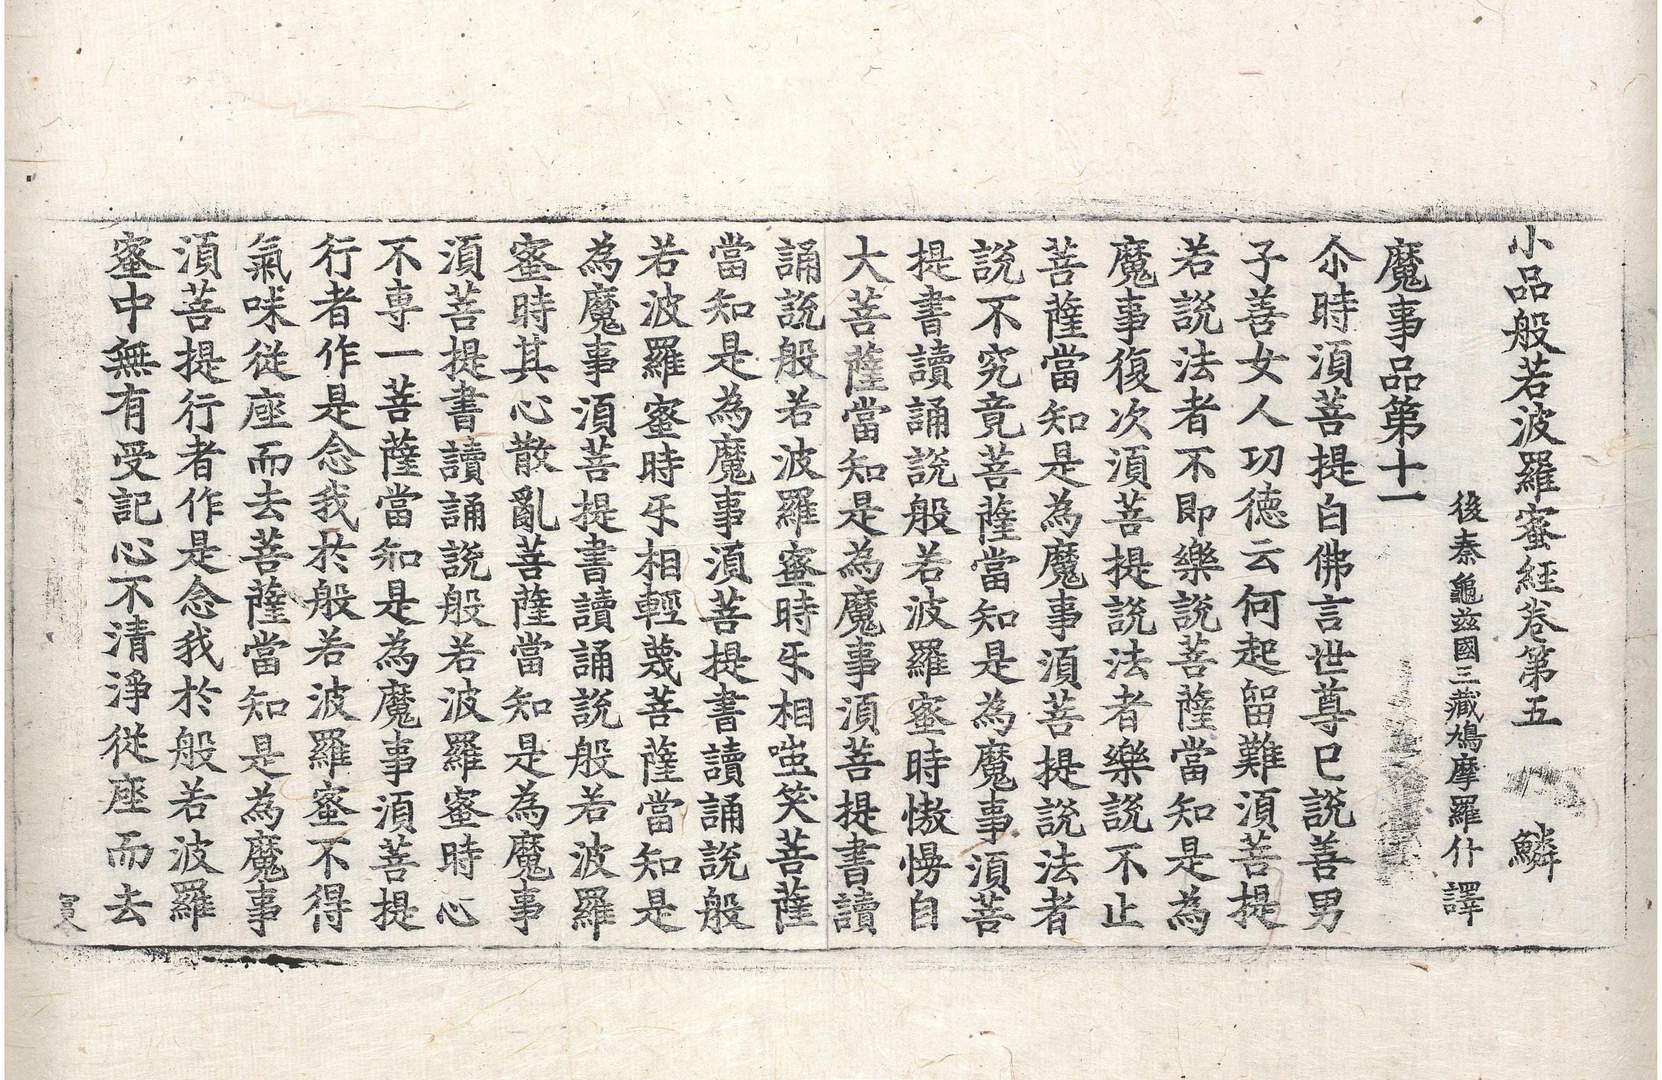 小品般若波羅蜜經卷第五　鱗
後秦龜兹國三藏鳩摩羅什譯
魔事品第十一
尒時須菩提白佛言世尊已說善男
子善女人功德云何起留難須菩提
若說法者不即樂說菩薩當知是為
魔事復次須菩提說法者樂說不止
菩薩當知是為魔事須菩提說法者
說不究竟菩薩當知是為魔事須菩
提書讀誦說般若波羅蜜時慠慢自
大菩薩當知是為魔事須菩提書讀
誦說般若波羅蜜時㸦相嗤笑菩薩
當知是為魔事須菩提書讀誦說般
若波羅蜜時㸦相輕蔑菩薩當知是
為魔事須菩提書讀誦說般若波羅
蜜時其心散亂菩薩當知是為魔事
須菩提書讀誦說般若波羅蜜時心
不専一菩薩當知是為魔事須菩提
行者作是念我於般若波羅蜜不得
氣味従座而去菩薩當知是為魔事
須菩提行者作是念我於般若波羅
蜜中無有受記心不清淨従座而去